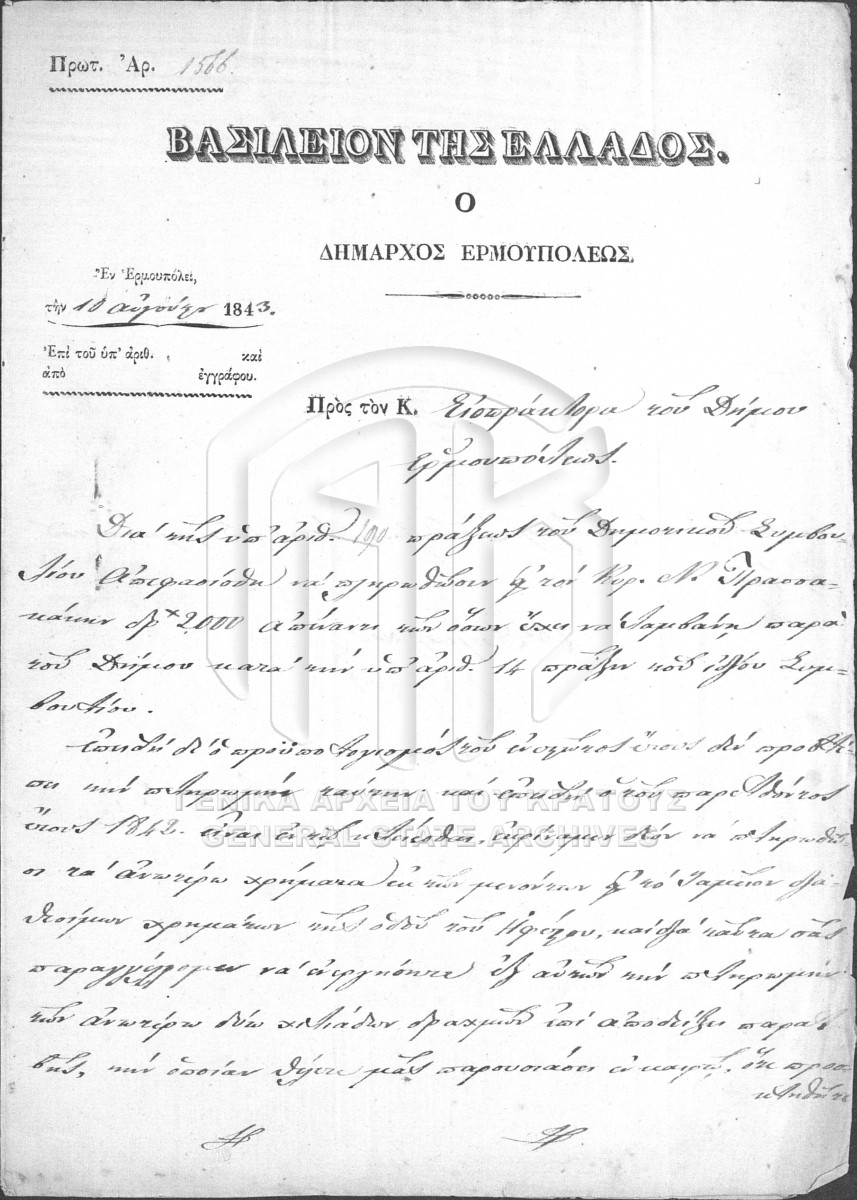 Πρωτ. Ἀρ. 1566.
ΒΑΣΙΛΕΙΟΝ ΤΗΣ ΕΛΛΑΔΟΣ.
Ο
ΔΗΜΑΡΧΟΣ ΕΡΜΟΥΠΟΛΕΩΣ
Ἐν Ἑρμουπόλει,
τὴν 10 αὐγούστου 1843.
Ἐπὶ τοῦ ὑπ' ἀριθ. , καὶ
ἀπὸ ἐγγράφου.
Πρὸς τὸν Κ. Εἰσπράκτορα τοῦ Δήμου
Ἑρμουπόλεως.
Διὰ τῆς ὑπ' ἀριθ. 190 πράξεως τοῦ Δημοτικοῦ Συμβου-
λίου ἀπεφασίσθη νὰ πληρωθῶσιν τὸν Κύρ. Ν. Πρασσα-
κάκην δρχ 2000 ἀπέναντι τῶν ὅσων ἔχει νὰ λαμβάνῃ παρὰ
τοῦ Δήμου κατὰ τὴν ὑπ' ἀριθ. 14 πρᾶξιν τοῦ ἰδίου Συμ-
βουλίου.
Ἐπειδὴ δὲ ὁ προϋπολογισμὸς τοῦ ἐνεστῶτος ἔτους δὲν προβλέ-
πει τὴν πληρωμὴν ταύτην, καὶ ἐπειδὴ ὁ τοῦ παρελθόντος
ἔτους 1842 εἶναι ἐν τῷ κλείεσθαι, ἐκρίναμεν δέον νὰ πληρωθῶ-
σι τὰ ἀνωτέρω χρήματα ἐκ τῶν μενόντων τὸ Ταμεῖον δια-
θεσίμων χρημάτων τῆς ὁδοῦ τοῦ Ἡφαίστου, καὶ διὰ ταῦτα σᾶς
παραγγέλλομεν νὰ ἐνεργήσητε ἐξ αὐτῶν τὴν πληρωμὴν
τῶν ἀνωτέρω δύω χιλιάδων δραχμῶν ἐπὶ ἀποδείξει παραλα-
βῆς, τὴν ὁποίαν θέλετε μᾶς παρουσιάσει ἐν καιρῷ, ὅτε προσ-
κληθῆτε
ΓΕΝΙΚΑ ΑΡΧΕΙΑ ΤΟΥ ΚΡΑΤΟΥΣ
GENERAL STATE ARCHIVES